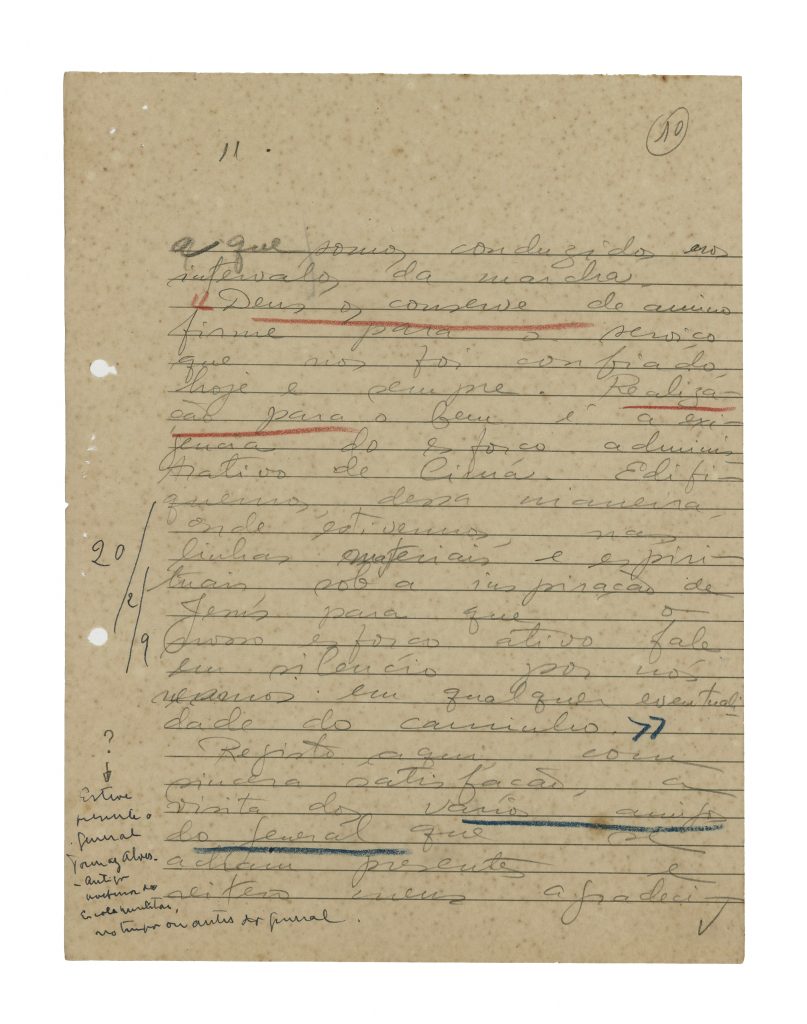 10
11 .
a que somos conduzidos nos
intervalos da marcha.
" Deus os conserve de animo
firme para o serviço
que nos foi confiado,
hoje e sempre. Realiza-
ção para o bem é a exi-
gencia do esforço adminis
trativo de Cima. Edifi-
quemos, dessa maneira,
onde estivermos, nas
linhas materiais e espiri-
tuais sob a inspiração de
Jesús para que o
nosso esforço ativo fale
em silencio por nós
mesmos em qualquer eventuali-
dade do caminho. »
Registo aqui, com
sincera satisfacão, a
visita dos varios amigos
do general que se
acham presentes e
reitero meus agradeci-
20/2/9
?
Esteve
presente o
general
Alves.
- Antigo
Escola militar,
no tempo ou antes do general.